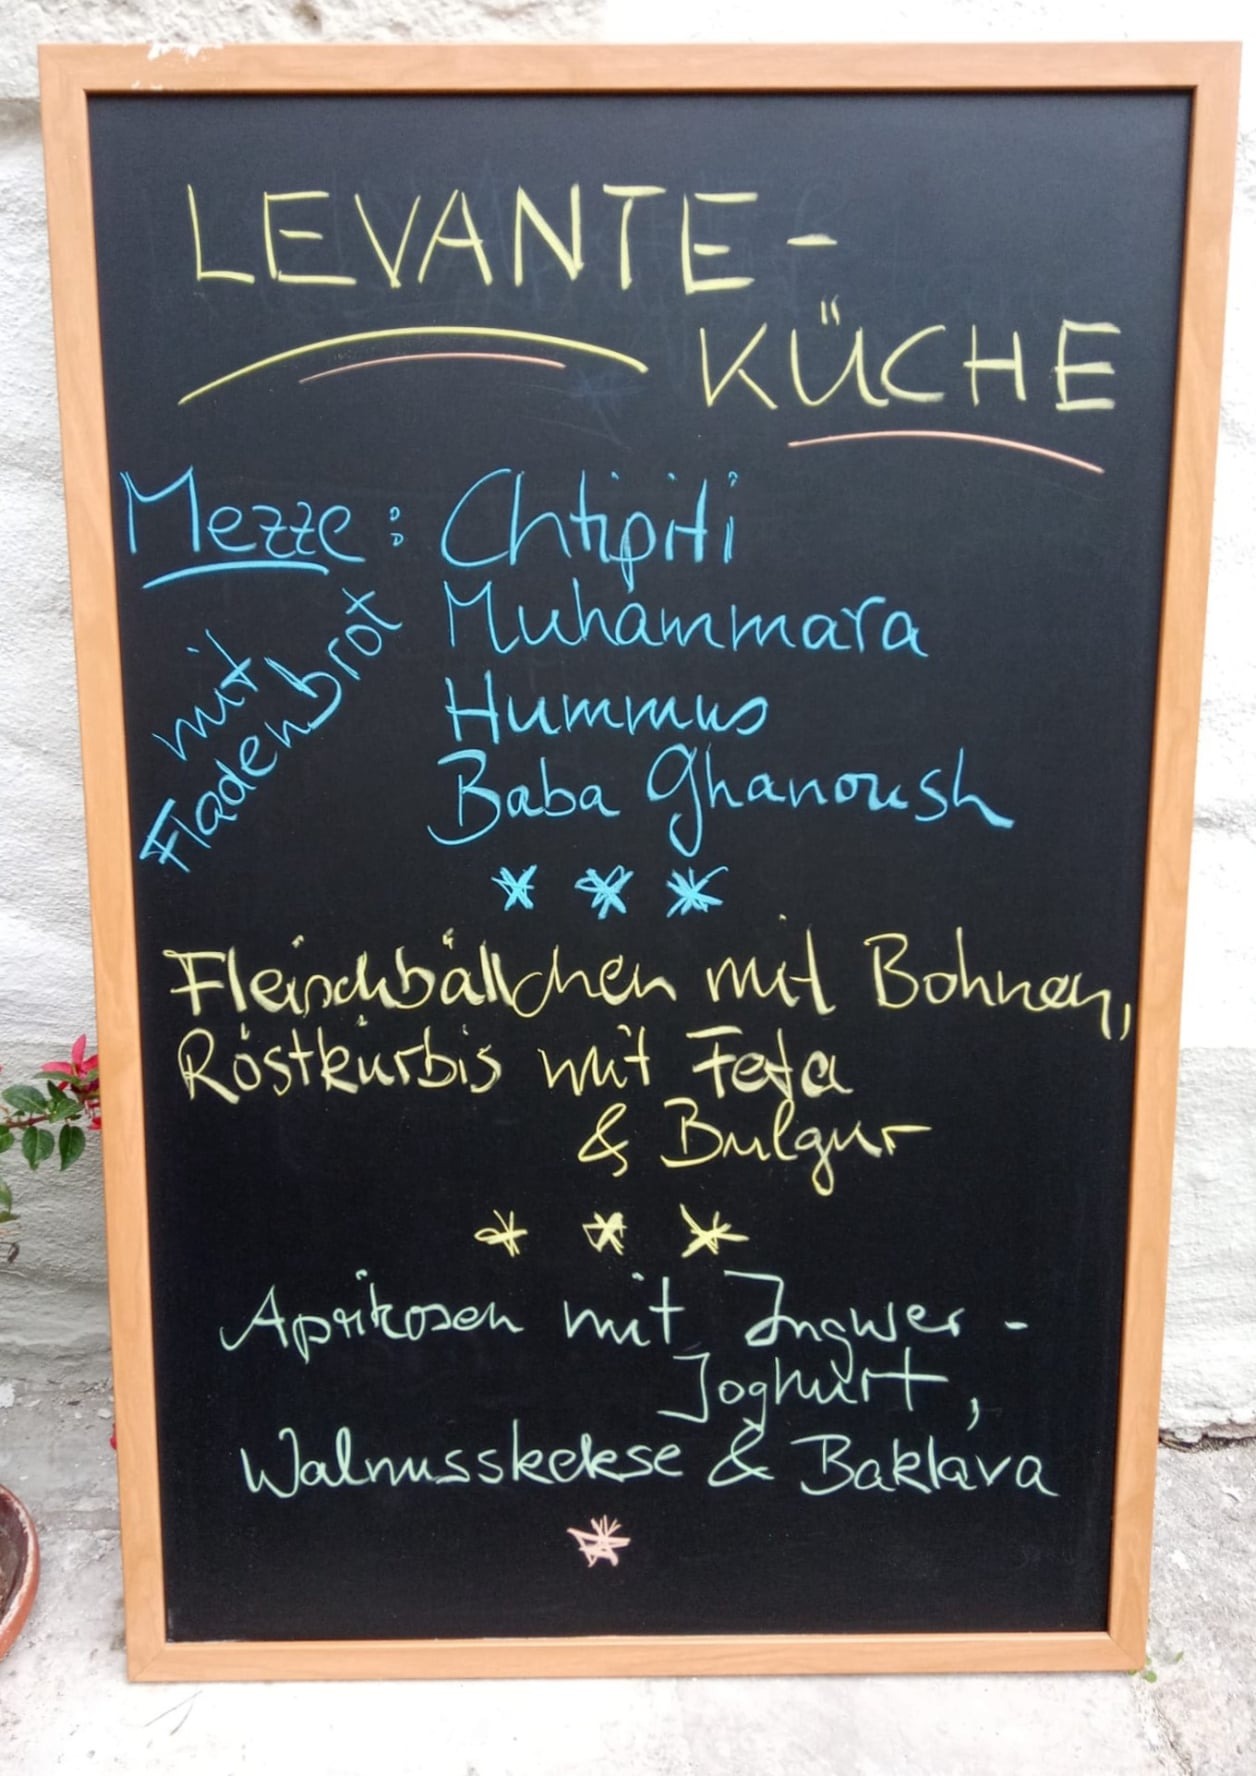 LEVANTE-
KÜCHE
Mezze: Chtipiti
Muhammara
Hummus
Baba Ghanoush
mit
Fladenbrot
* * *
Fleischbällchen mit Bohnen,
Röstkürbis mit Feta
& Bulgur
* * *
Aprikosen mit Ingwer-
Joghurt,
Walnusskekse & Baklava
*